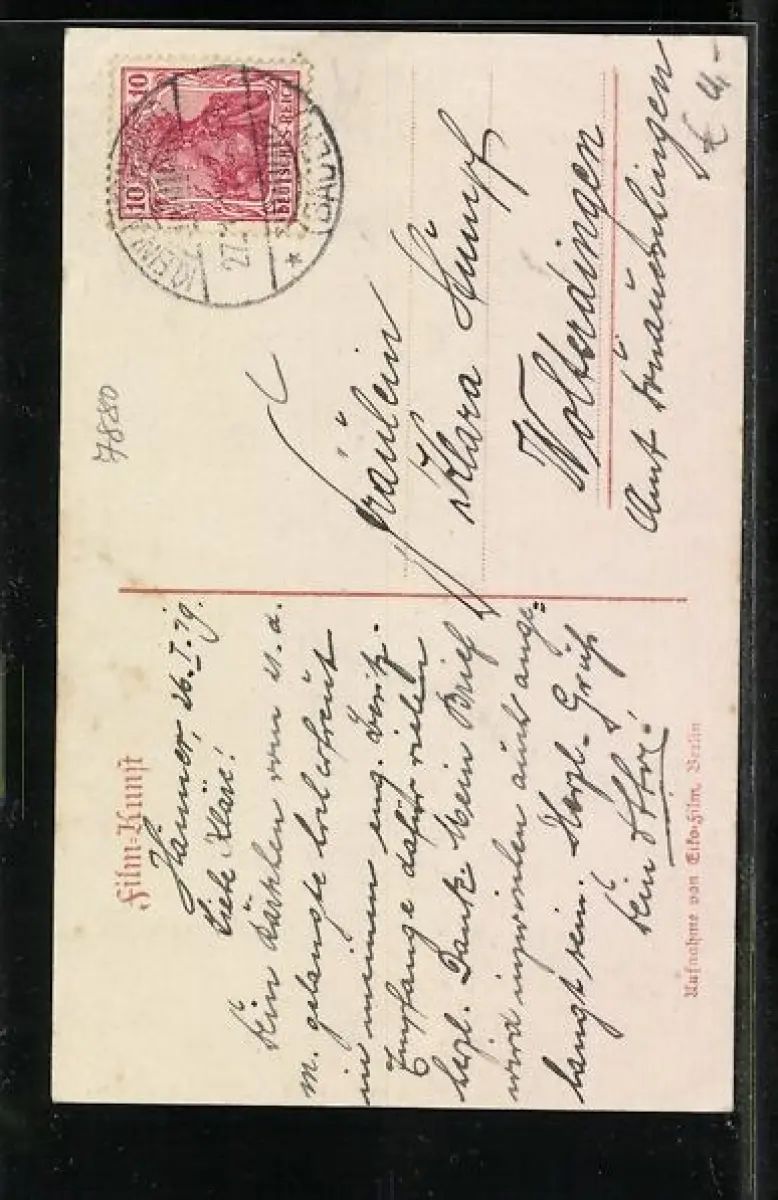 Film-Kunst
Hänner, 26.I.19.
Liebe Kläre!
Dein Kärtchen vom 21. d.
m. gelangte hocherfreut
in meinen eng. Besitz.
Empfange dafür vielen
herzl. Dank. Mein Brief
wird inzwischen auch ange=
langt sein. Herzl. Gruß
Dein
Aufnahme von Eiko-Film, Berlin
10
10
DEUTSCHES REICH
27.
(BADEN)
7880
Fräulein
Klara Kumpf
Wolterdingen
Amt Donaueschingen